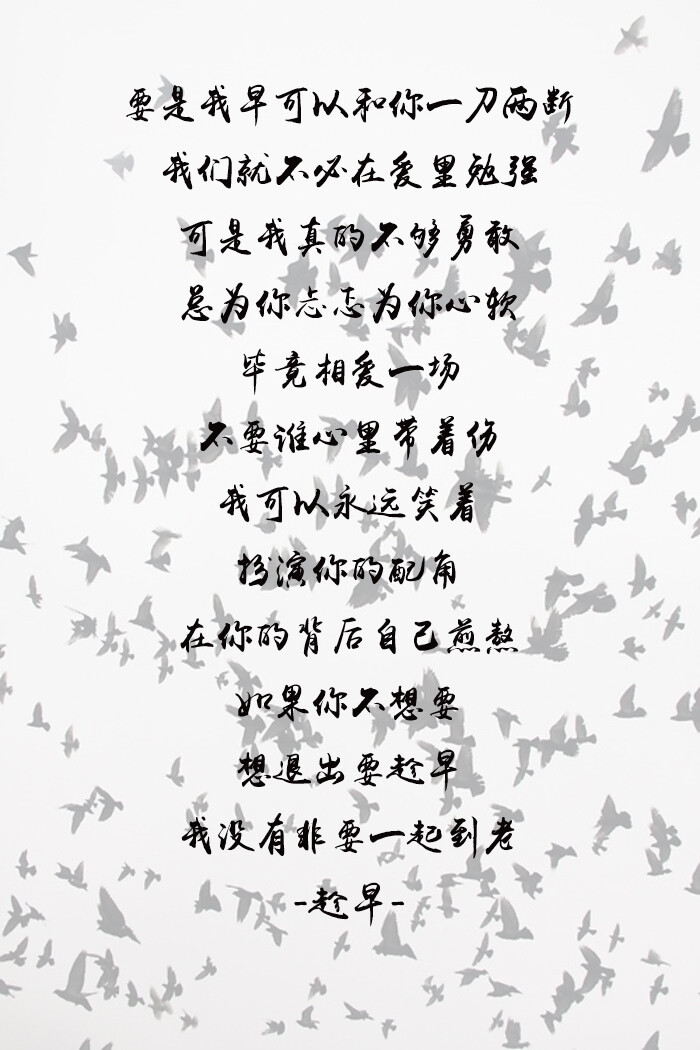 要是我早可以和你一刀两断
我们就不必在爱里勉强
可是我真的不够勇敢
总为你忐忑为你心软
毕竟相爱一场
不要谁心里带着伤
我可以永远笑着
扮演你的配角
在你的背后自己煎熬
如果你不想要
想退出要趁早
我没有非要一起到老
-趁早-